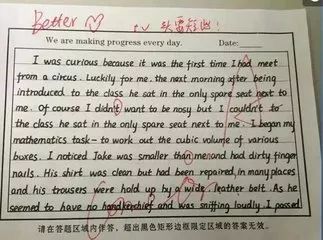 Better
头重轻出!
We are making progress every day. Date:
I was curious because it was the first time I had meet
from a circus. Luckily for me. the next morning after being
introduced to the class he sat in the only spare seat next to
me. Of course I didn't want to be nosy but I couldn't to
the class he sat in the only spare seat next to me. I began my
mathematics task- to work out the cubic volume of various
boxes. I noticed Jake was smaller than me and had dirty finger
nails. His shirt was clean but had been repaired, in many places
and his trousers were hold up by a wide leather belt. As he
seemed to have no handkerchief and was sniffing loudly I passed
请在答题区域内作答, 超出黑色矩形边框限定区域的答案无效。